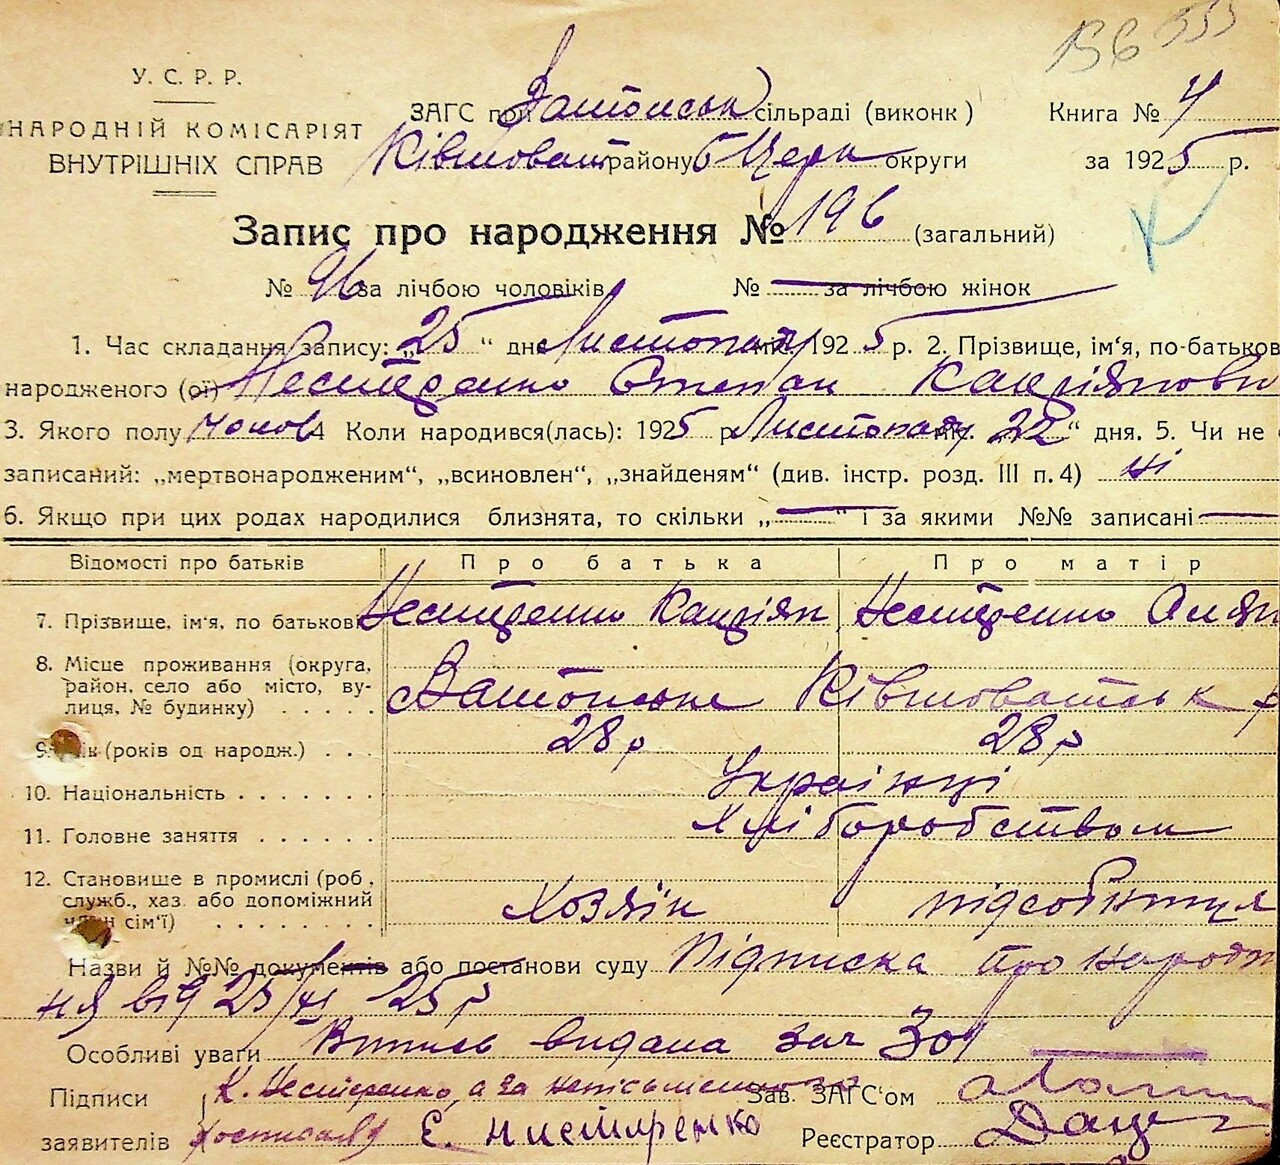 156 555
У. С. Р. Р.
НАРОДНІЙ КОМІСАРІЯТ
ВНУТРІШНІХ СПРАВ
ЗАГС при Затонськ сільраді (виконк) Книга № 4
Ківшоват району Б Церк округи за 1925 р.
Запис про народження № 196 (загальний)
№ 96 за лічбою чоловіків № за лічбою жінок
1. Час складання запису: „25“ дня Листопаду міс. 1925 р. 2. Прізвище, ім'я, по-батькові
народженого (ої) Нестеренко Степан Капріянови
3. Якого полу чолов 4 Коли народився(лась): 1925 р Листопаду міс. 22“ дня. 5. Чи не
записаний: „мертвонародженим“, „всиновлен“, „знайденям“ (див. інстр. розд. III п. 4) ні
6. Якщо при цих родах народилися близнята, то скільки „ “ і за якими №№ записані
Відомості про батьків Про батька Про матір
7. Прізвище, ім'я, по батькові Нестеренко Капріян Нестеренко
8. Місце проживання (округа, район, село або місто, вулиця, № будинку) Затонське Ківшоватськ р
9. Вік (років од народж.) 28 р 28 р
10. Національність Українці
11. Головне заняття Хліборобством
12. Становище в промислі (роб., служб., хаз. або допоміжний член сім'ї) Хозяїн підсобниця
Назви й №№ документів або постанови суду Підписка про народж
ня від 25/XI 25 р
Особливі уваги Випись видана зач 301
Підписи К. Нестеренко, а за неписьменного Зав. ЗАГС'ом
заявителів Є. Нистиренко Реєстратор